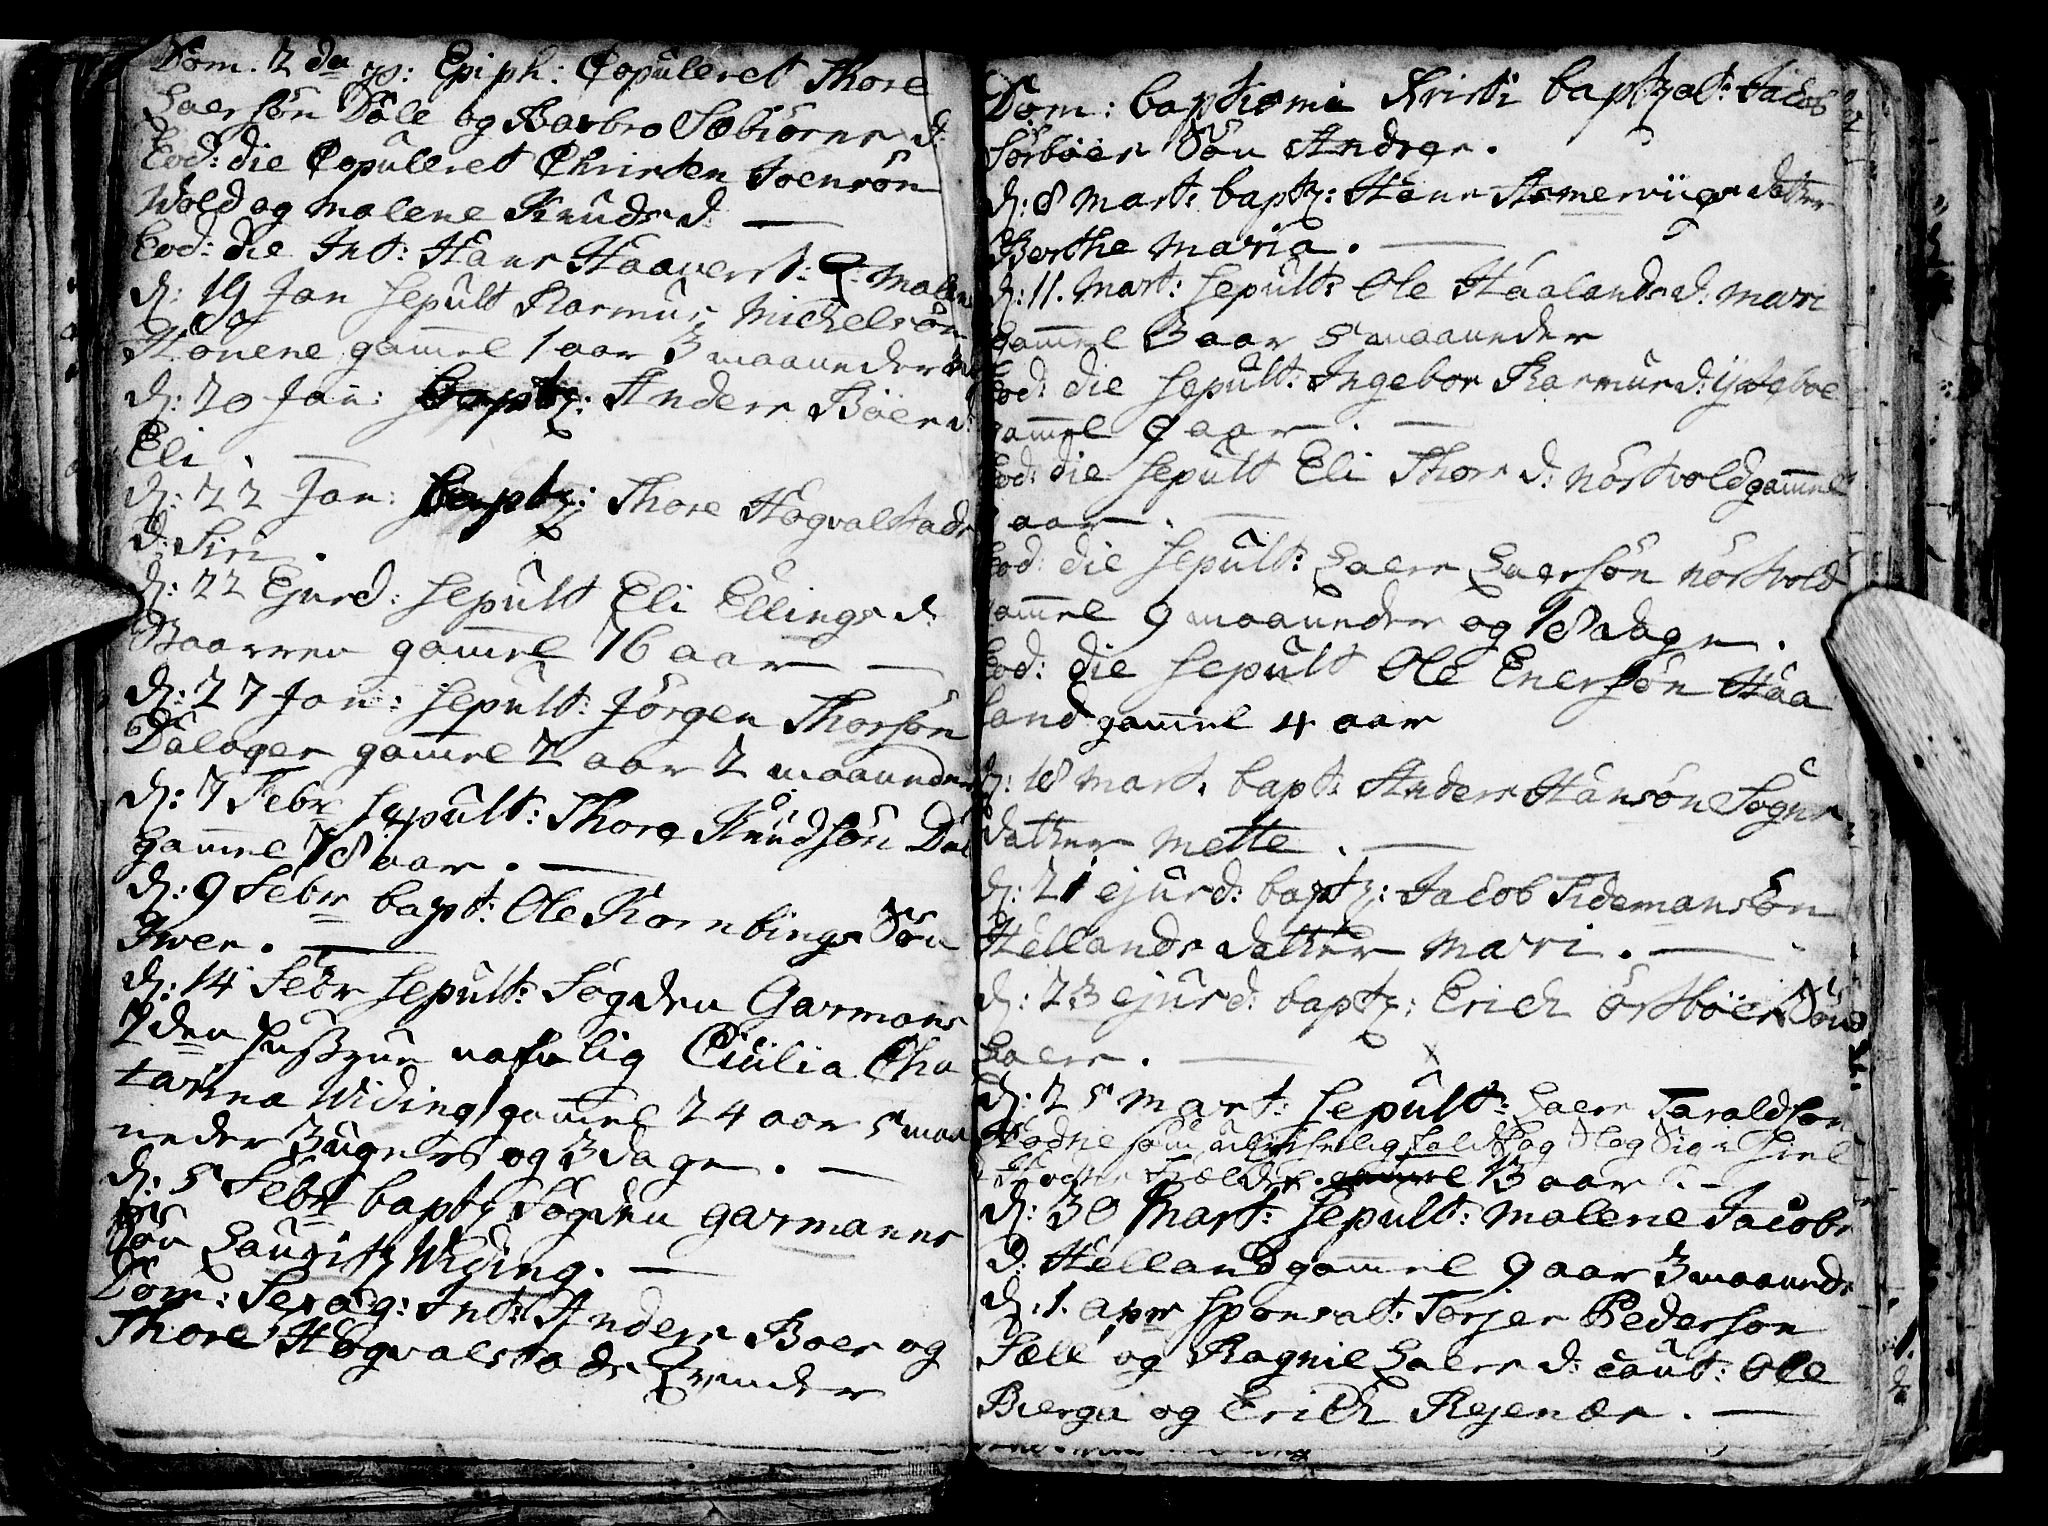 Dom. 2da p: Epiph: Copuleret Thore
Laersön Dale og Barbro Sebiörns d:
Eod: die Copuleret Christen Joensön
Wold og Malene Knuds d: —
Eod: die Int: Hans Haavers t: Q: Malene
d: 19 Jan sepult Rasmus Michelsön
Honene gamel 1 aar 3 maaneder
d: 20 Jan: baptz: Anders Böes d:
Eli. —
d: 22 Jan: baptz: Thore Hogvalstads
d: Siri.
d: 22 Ejusd: sepult Eli Ellings d:
gamel 16 aar —
d: 27 Jan: sepult: Jörgen Thorsön
Dalager gamel 2 aar 2 maaneder
d: 7 Febr sepult: Thore Knudsön Dal
gamel 78 aar. —
d: 9 Febr bapt: Ole Kornbings Sön
Iver. —
d: 14 Febr sepult: Fogden Garmans
2den Hustrue nafnlig Cicilia Cha
tarina Widing gamel 24 aar 5 maa
neder 3 uger og 3 dage. —
d: 5 Febr baptz Fogden Garmanns
Sön Lauritz Widing. —
Dom: Sexag: Int: Anders Boes og
Thore Hogvalstads Qvinder
Dom: baptismi Kristi baptzat: Jacob
Sörböes Sön Andreas.
d: 8 Mart: baptz: Hans Asmerviigs datter
Berthe Maria. —
d: 11. Mart: sepult: Ole Haalands d: Mari
gamel 3 aar 5 maaneder
Eod: die sepult: Ingebor Rasmus d: Ysteboe
gamel 9 aar. —
Eod: die sepult Eli Thors d: Nortvold gamel
aar. —
Eod: die sepult: Laers Laersön Nortvold
gamel 9 maaneder og 18 dage.
Eod: die sepult Ole Enersön Haa
land gamel 4 aar
d: 18 Mart. bapt: Anders Hansön Sogns
datter Mette. —
d: 21 ejusd: baptz: Jacob Tidemansön
Hellands datter Mari. —
d: 23 ejusd: baptz: Erich Örstböes Sön
Laers. —
d: 25 Mart: sepult: Laers Taraldsön
Hodne som ulyckelig fald og slog sig ihiel
gamel 13 aar. —
d: 30 Mart: sepult: Malene Jacobs
d: Helland gamel 9 aar 3 maaneder
d: 1. apr sponsat: Torjer Pedersön
Sæle og Ragnil Laers d: caut: Ole
Bierga og Erich Rejenæs. —